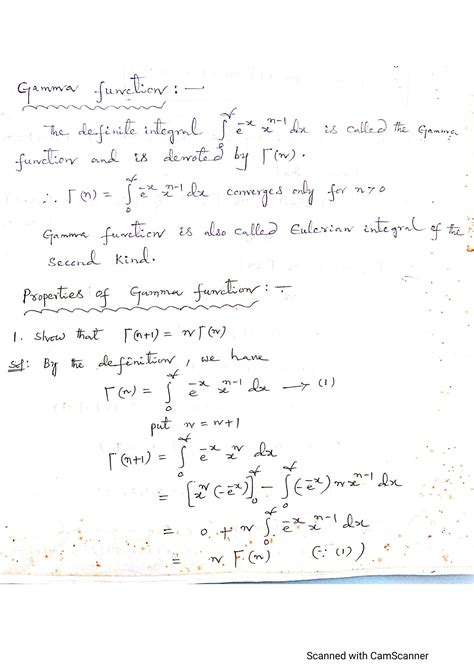 Gamma function :—
The definite integral ∫₀^∞ e^-x x^n-1 dx is called the Gamma
function and is denoted by Γ(n).
∴ Γ(n) = ∫₀^∞ e^-x x^n-1 dx converges only for n>0
Gamma function is also called Eulerian integral of the
Second Kind.
Properties of Gamma function :—
1. Show that Γ(n+1) = nΓ(n)
Sol: By the definition, we have
Γ(n) = ∫₀^∞ e^-x x^n-1 dx → (1)
put n = n+1
Γ(n+1) = ∫₀^∞ e^-x x^n dx
= [x^n (-e^-x)]₀^∞ - ∫₀^∞ (-e^-x) n x^n-1 dx
= 0 + n ∫₀^∞ e^-x x^n-1 dx
= n Γ(n) (∵ (1))
Scanned with CamScanner